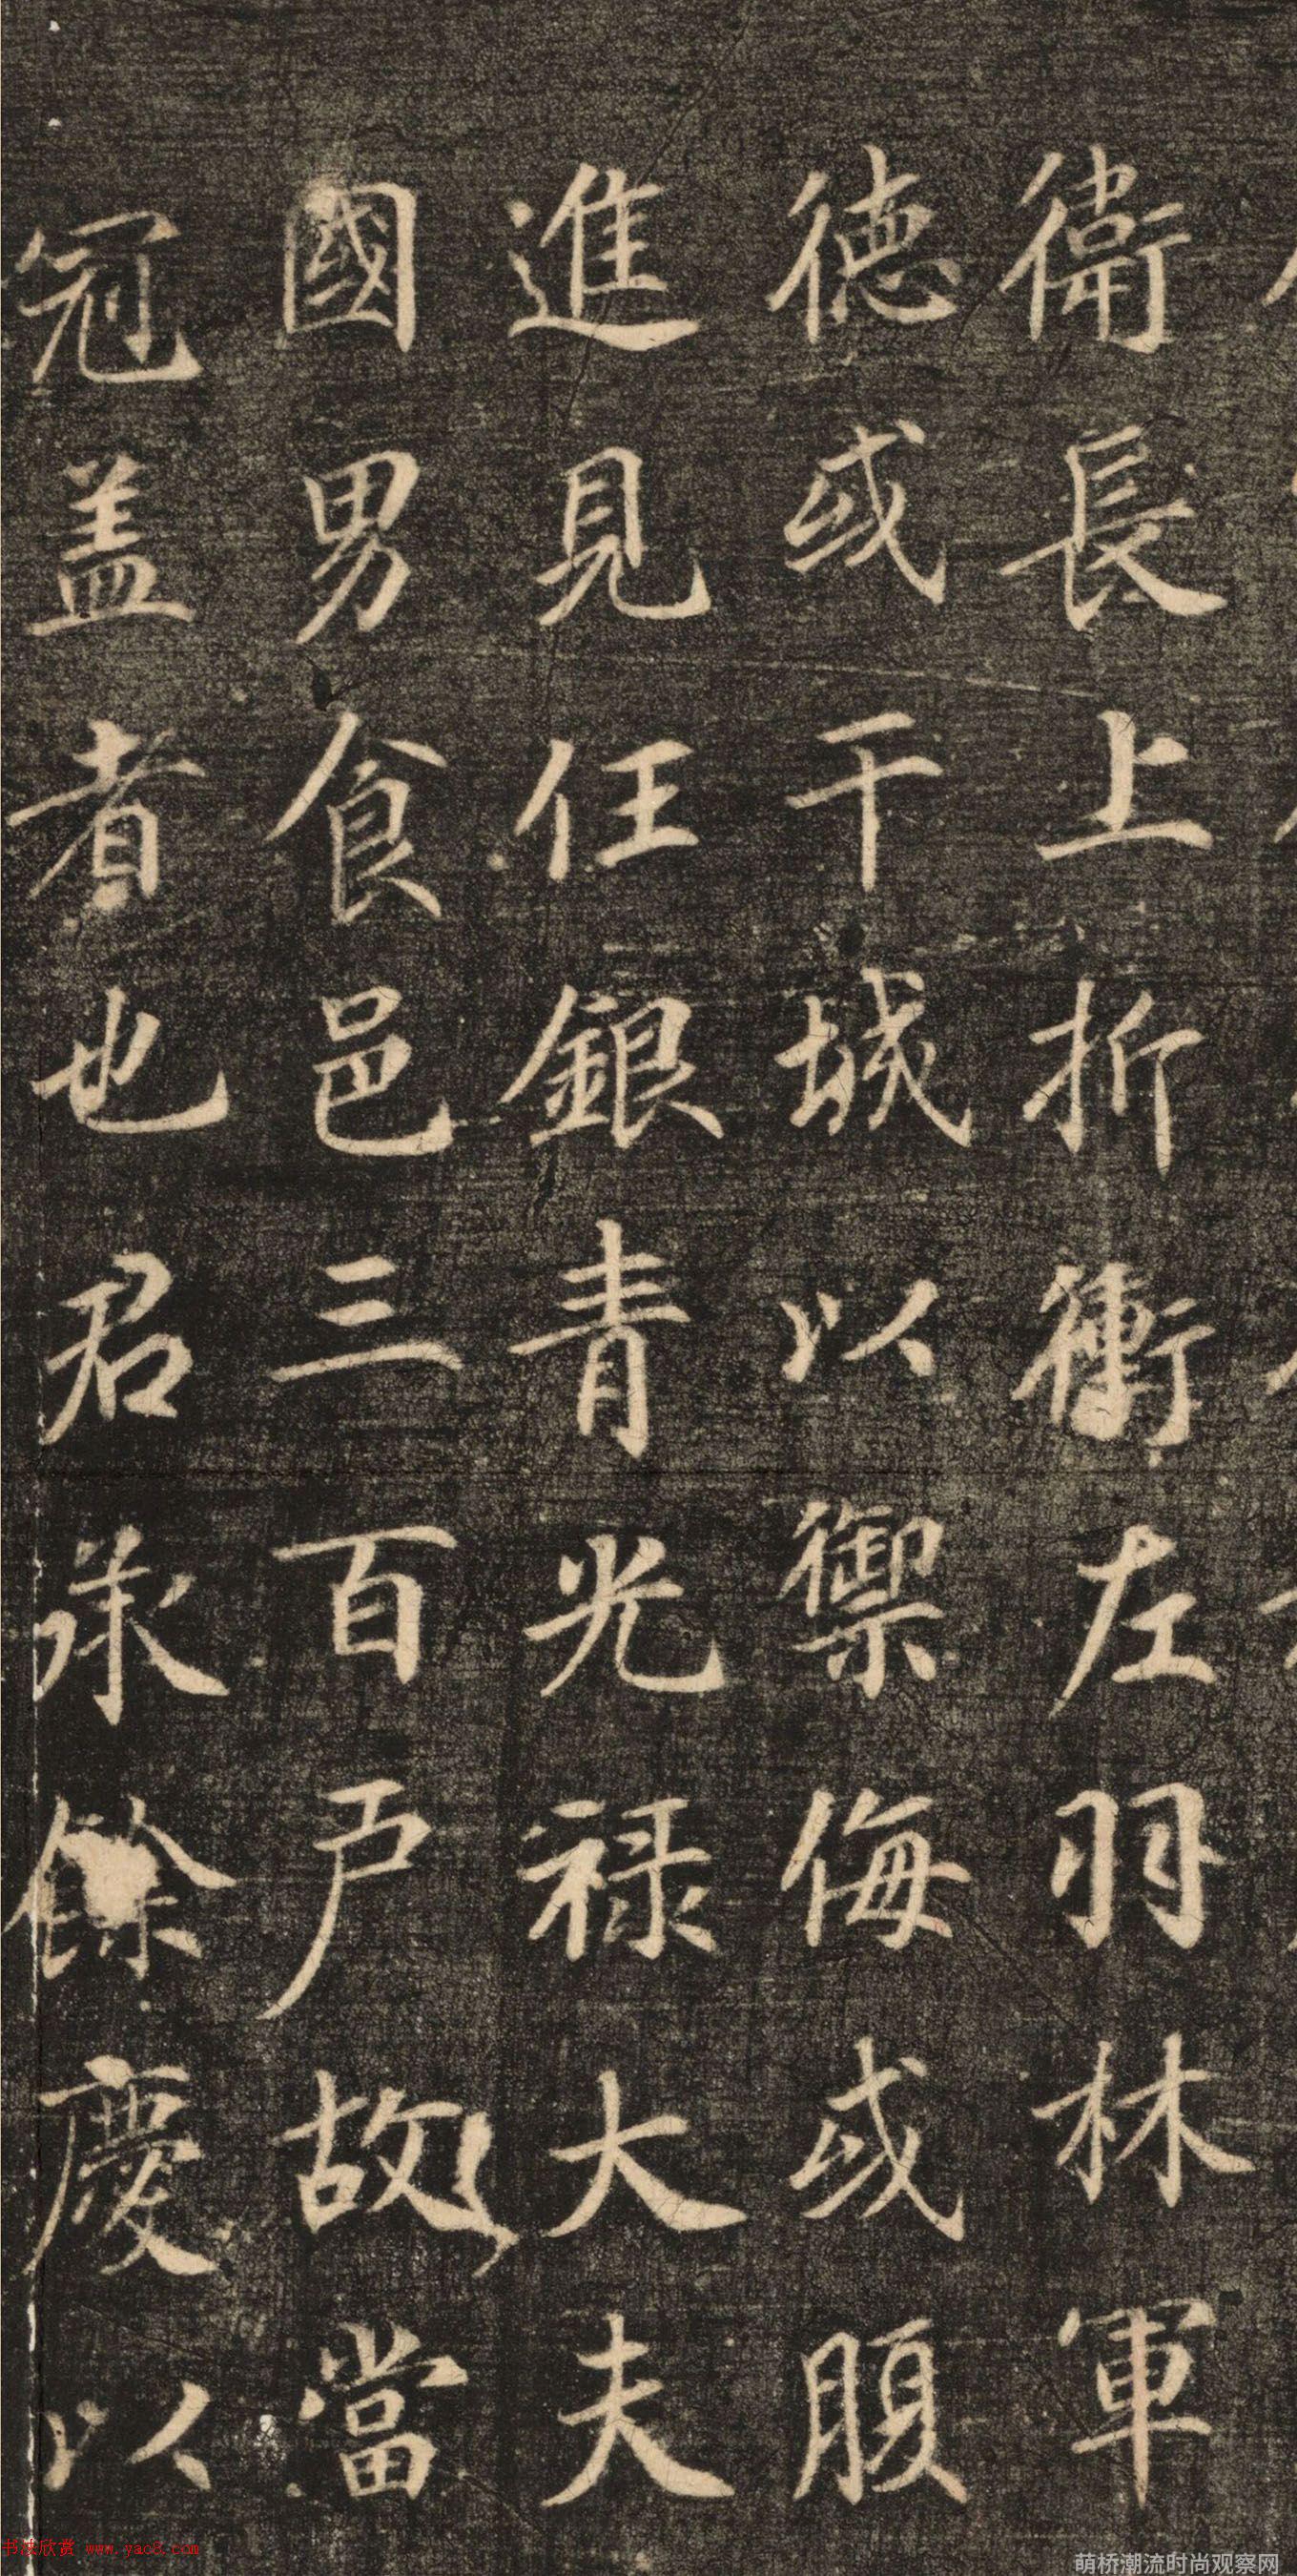 衛長上折衝左羽林軍
德或干城以禦侮或腹
進見任銀青光禄大夫
國男食邑三百户故當
冠盖者也君承餘慶以
书法欣赏 www.yac8.com
萌桥潮流时尚观察网